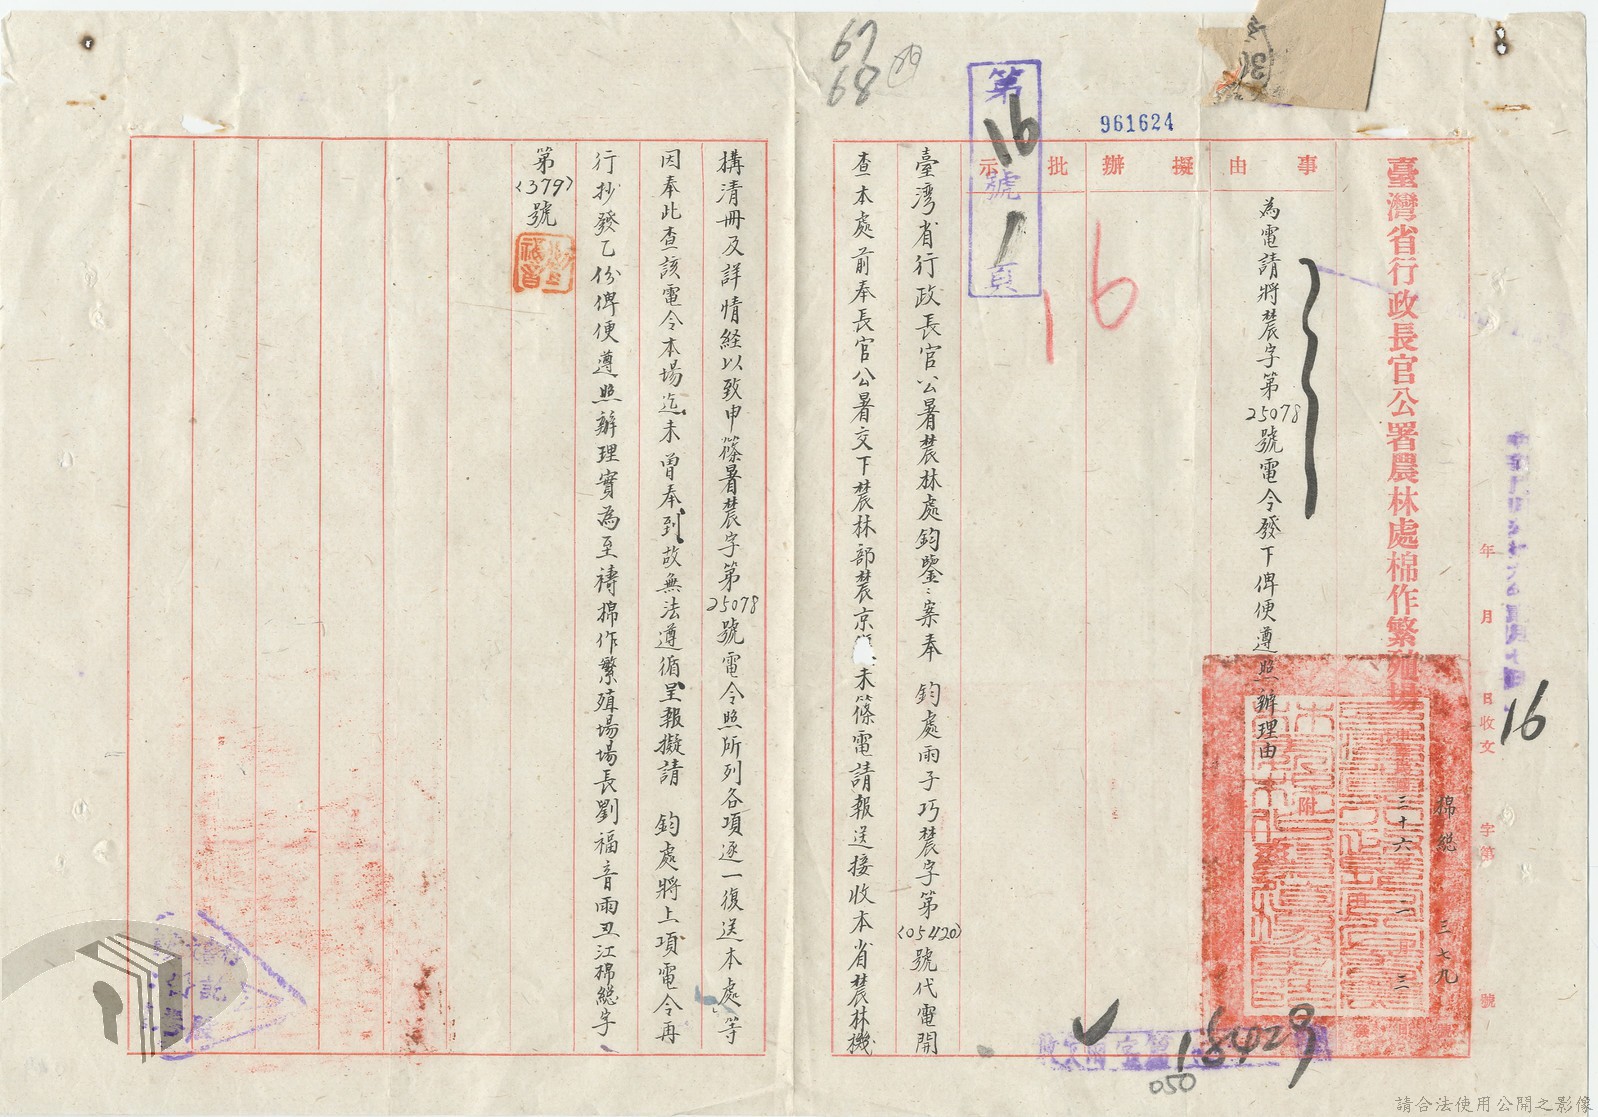 臺灣省行政長官公署農林處棉作繁殖場
年 月 日收文 字第 號
16
棉総 三七九
三十六 二 三
附
事由
為電請將農字第25078號電令發下俾便遵照辦理由
擬辦
批示
16
961624
第16號1頁
67
68
臺灣省行政長官公署農林處鈞鑒：案奉 鈞處雨子巧農字第(05420)號代電開
查本處前奉長官公署交下農林部農京 未篠電請報送接收本省農林機
構清冊及詳情経以致申篠署農字第25078號電令照所列各項逐一復送本處等
因奉此查該電令本場迄未曾奉到故無法遵循呈報擬請 鈞處將上項電令再
行抄發乙份俾便遵照辦理實為至禱棉作繁殖場場長劉福音雨丑江棉総字
第(379)號
18429
050
請合法使用公開之影像